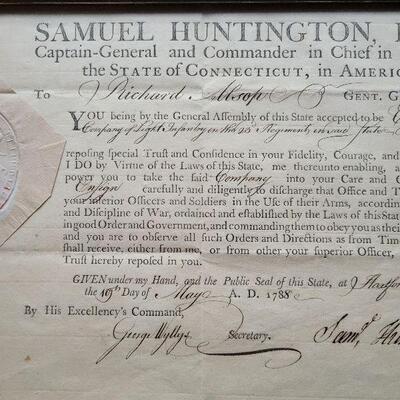 SAMUEL HUNTINGTON,
Captain-General and Commander in Chief in
the STATE of CONNECTICUT, in AMERIC
To Richard Alsop GENT. G
YOU being by the General Assembly of this State accepted to be
Company of Light Infantry in the 23d Regiment in said State
reposing special Trust and Confidence in your Fidelity, Courage, and
I DO by Virtue of the Laws of this State, me thereunto enabling, a
power you to take the said Company into your Care and C
Ensign carefully and diligently to discharge that Office and T
your inferior Officers and Soldiers in the Use of their Arms, accordin
and Discipline of War, ordained and established by the Laws of this State
in good Order and Government, and commanding them to obey you as their
and you are to observe all such Orders and Directions as from Time
shall receive, either from me, or from other your superior Officer,
Trust hereby reposed in you.
GIVEN under my Hand, and the Public Seal of this State, at Hartfor
the 19th Day of May A. D. 1788
By His Excellency's Command,
George Wyllys Secretary. Saml